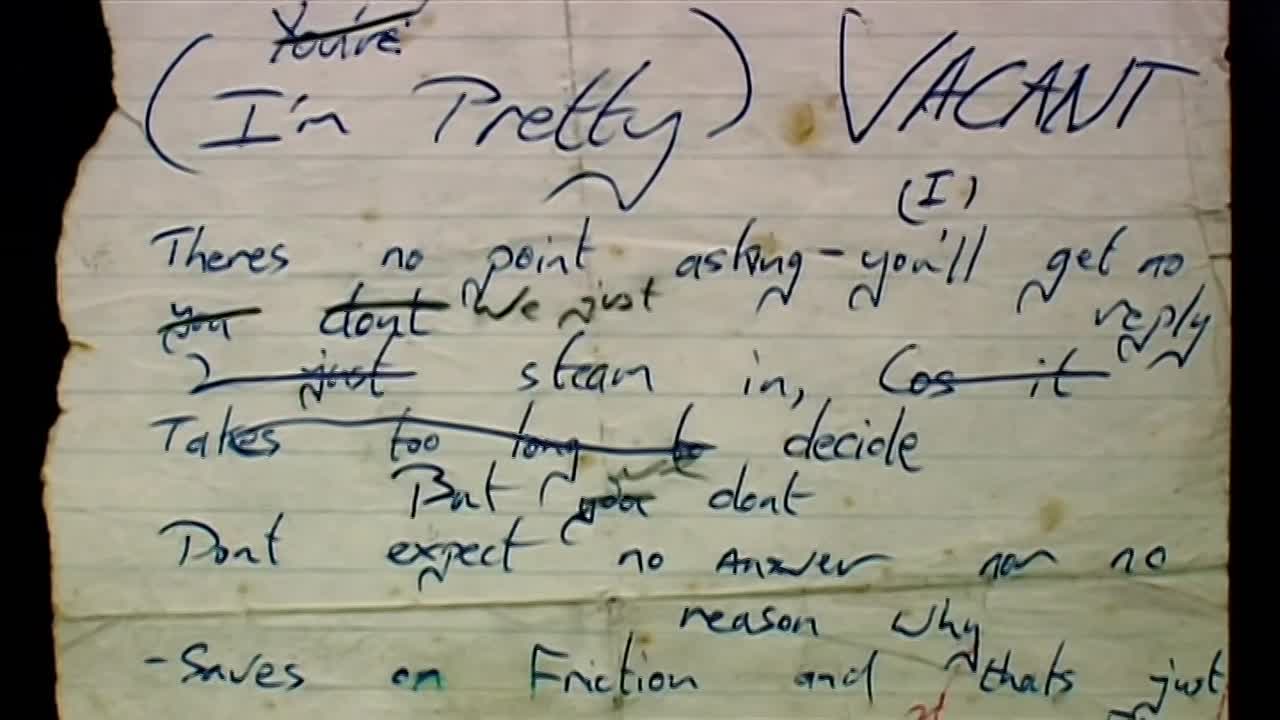 You're
(I'm Pretty) VACANT
(I)
Theres no point asking - you'll get no
reply
you dont We just
I just steam in, Cos it
Takes too long to decide
But you dont
Dont expect no answer nor no
reason why
- Saves on Friction and thats just